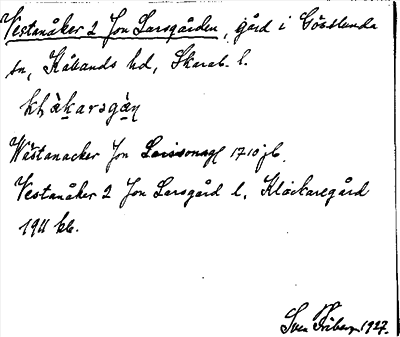 Vestanåker 2 Jon Larsgården, gård i Gösslunda
sn, Kållands hd, Skarab. l.
klåkarsgän
Wästanacker Jon 1710 jb.
Vestanåker 2 Jon Larsgård l. Klockaregård
1911 kb.
Sven Friberg 1927.